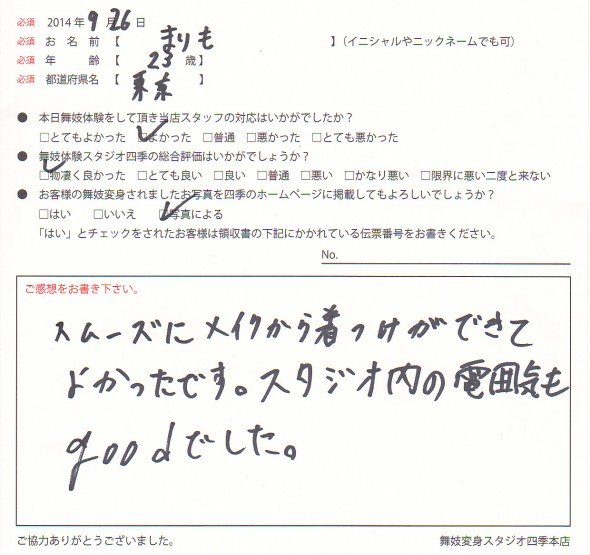 必須 2014年 9月 26日
必須 お名前【 まりも 】（イニシャルやニックネームでも可）
必須 年齢【 23 歳】
必須 都道府県名【 東京 】
● 本日舞妓体験をして頂き当店スタッフの対応はいかがでしたか？
□とてもよかった ☑よかった □普通 □悪かった □とても悪かった
● 舞妓体験スタジオ四季の総合評価はいかがでしょうか？
☑物凄く良かった □とても良い □良い □普通 □悪い □かなり悪い □限界に悪い二度と来ない
● お客様の舞妓変身されましたお写真を四季のホームページに掲載してもよろしいでしょうか？
□はい □いいえ ☑写真による
「はい」とチェックをされたお客様は領収書の下記にかかれている伝票番号をお書きください。
No.
ご感想をお書き下さい。
スムーズにメイクから着つけができて
よかったです。スタジオ内の雰囲気も
goodでした。
ご協力ありがとうございました。
舞妓変身スタジオ四季本店